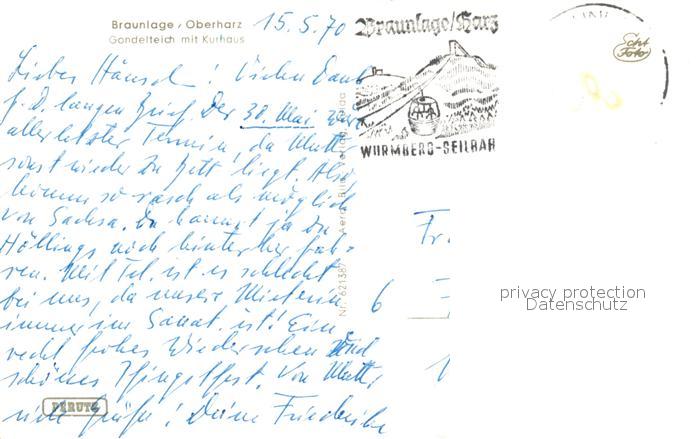 Braunlage, Oberharz
Gondelteich mit Kurhaus
15.5.70
Braunlage/Harz
WURMBERG-SEILBAH
Echt Foto
Liebes Hänsel! Vielen Dank
f. D. langen Brief. Der 30. Mai wäre
allerletzter Termin, da Mutti
sonst wieder zu Bett liegt. Also
komm so rasch als möglich
von Sachsa. Du kannst ja zu
Höllings noch hinterher fah-
ren. Mit Tel. ist es schlecht
bei uns, da unsere Mieterin
immer im Sanat. ist! Ein
recht frohes Wiedersehen und
schönes Pfingstfest. Von Mutti
viele Grüße! Deine Friederike
PERUTZ
Nr. 62138
Fr.
6
privacy protection
Datenschutz